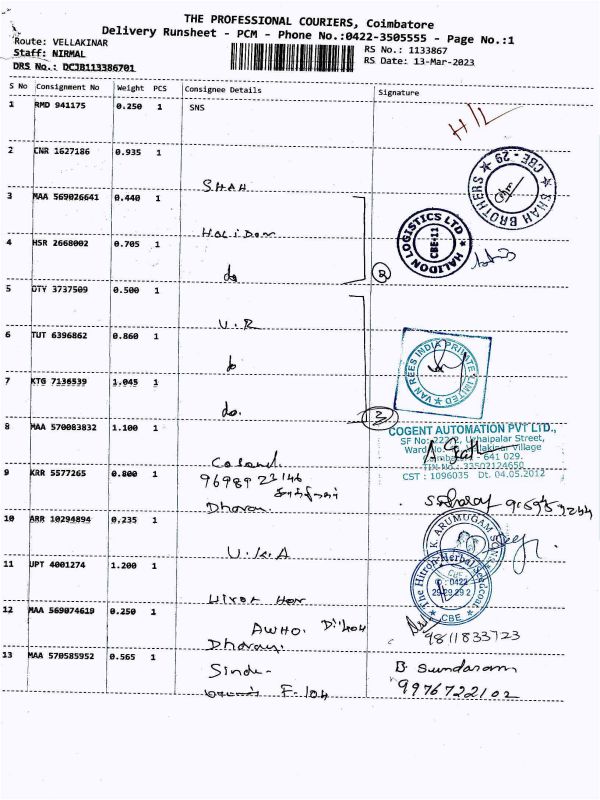 THE PROFESSIONAL COURIERS, Coimbatore
Delivery Runsheet - PCM - Phone No.:0422-3505555 - Page No.:1
Route: VELLAKINAR
Staff: NIRMAL
DRS No.: DCJB113386701
RS No.: 1133867
RS Date: 13-Mar-2023
S No Consignment No Weight PCS Consignee Details Signature
1 RMD 941175 0.250 1 SNS
H/L
2 CNR 1627186 0.935 1
SHAH
SHAH BROTHERS ★ CBE - 29 ★
3 MAA 569026641 0.440 1
HALIDON
HALIDON LOGISTICS LTD
CBE-11
4 HSR 2668002 0.705 1
do
2
5 OTY 3737509 0.500 1
V.R
6 TUT 6396862 0.860 1
do
VAN REES INDIA PRIVATE LIMITED
7 KTG 7136539 1.045 1
do.
3
8 MAA 570083832 1.100 1
COGENT AUTOMATION PVT LTD.,
Street,
Village
641 029.
TIN No.: 33502124650
CST : 1096035 Dt. 04.05.2012
9 KRR 5577265 0.800 1
9698923146
Dharan
10 ARR 10294894 0.235 1
V.K.A
K. ARUMUGAM
11 UPT 4001274 1.200 1
The Hitroh Herbal
CBE
12 MAA 569074619 0.250 1
AWHO.
Dharan
9811833723
13 MAA 570585952 0.565 1
Sindu
F-104
B Sundaram
9976722102